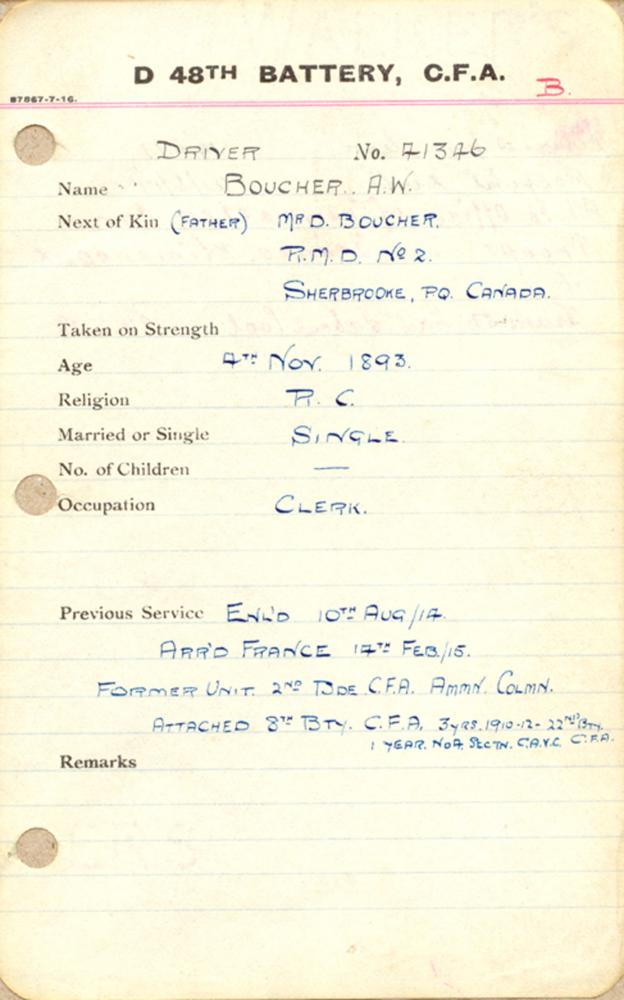 D 48TH BATTERY, C.F.A.
B.
87867-7-16.
DRIVER No. 41346
Name BOUCHER. A.W.
Next of Kin (FATHER) MR D. BOUCHER.
R.M.D. No 2.
SHERBROOKE, PQ. CANADA.
Taken on Strength
Age 4TH NOV. 1893.
Religion R. C.
Married or Single SINGLE.
No. of Children —
Occupation CLERK.
Previous Service ENL'D 10TH AUG/14.
ARR'D FRANCE 14TH FEB/15.
FORMER UNIT. 2ND BDE C.F.A. AMMN. COLMN.
ATTACHED 8TH BTY. C.F.A. 3 YRS. 1910-12- 22ND BTY.
1 YEAR. No 4. SECTN. C.A.V.C. C.F.A.
Remarks